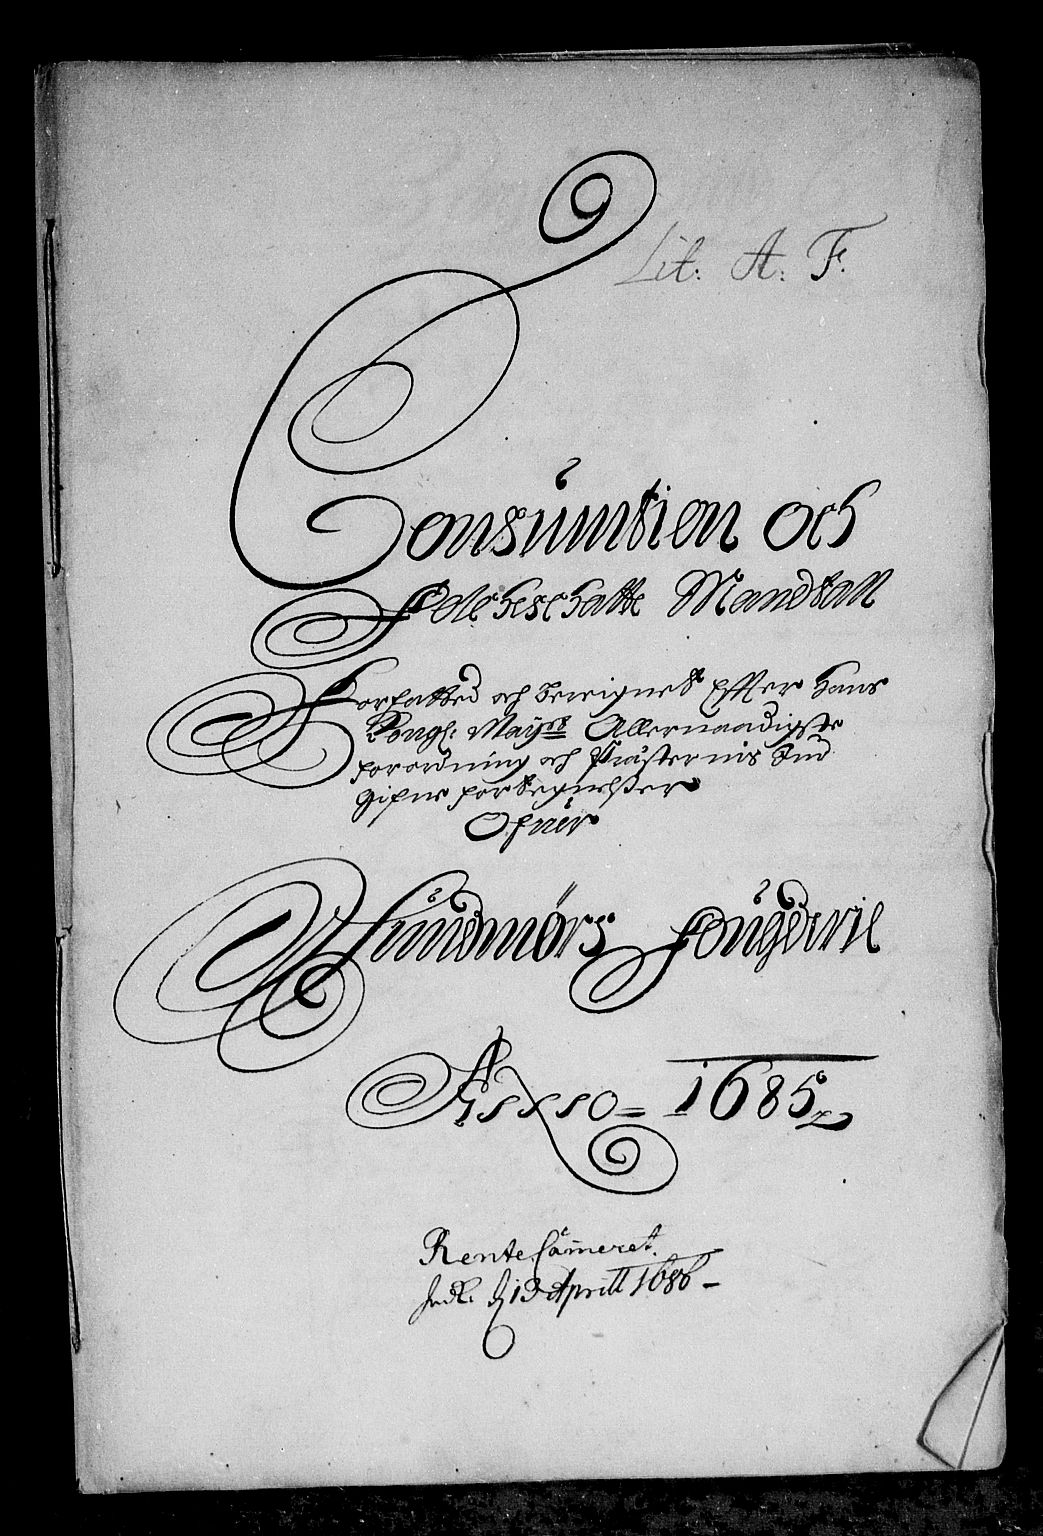 Lit: A: F.
Consumtion och
Folcheschatte Mandtall
Forfatted och bereignet Effter Hans
Kongl: Mayts Allernaadigste
forordning och Præsternis Ind
gifne fortegnelser
Ofuer
Sundmørs Fougderie
Anno 1685
Rente Cammeret.
Indl. d 13 Aprill 1686